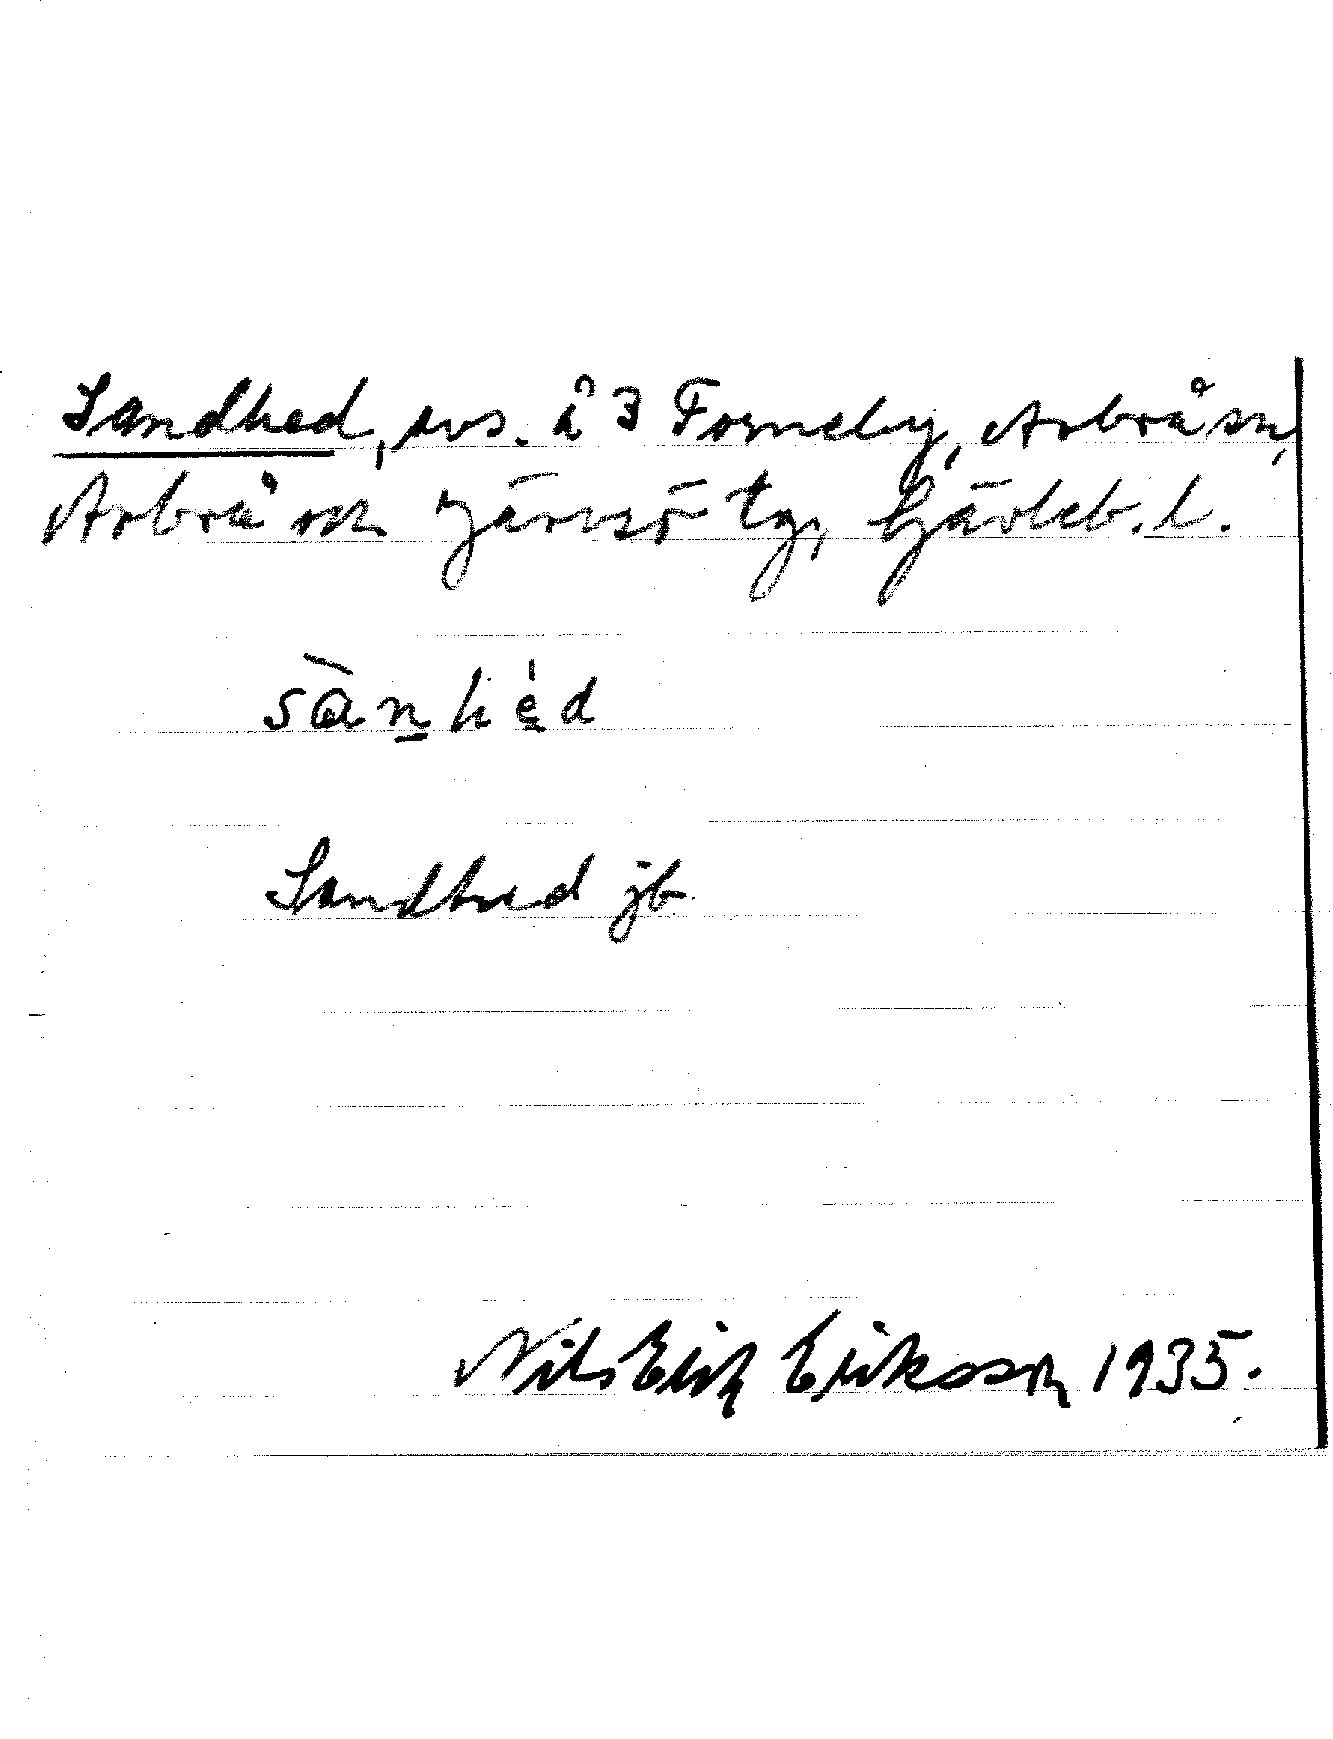 Sandhed, avs. å 3 Forneby, Arbrå sn,
Arbrå och Järvsö tg, Gävleb. l.
sànhéd
Sandhed jb
Nils Erik Eriksson 1935.